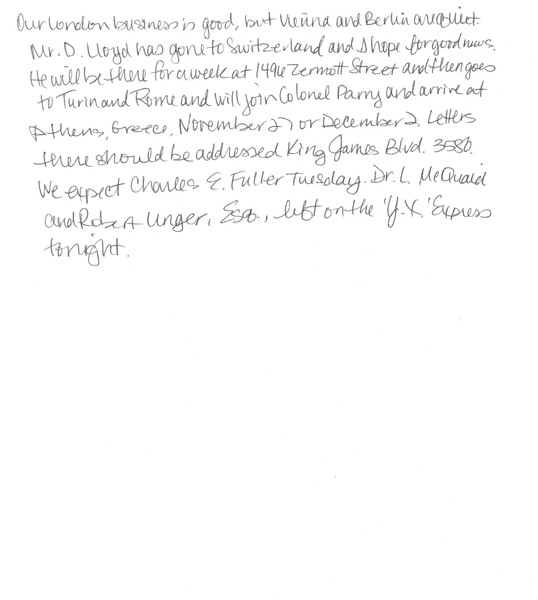 Our London business is good, but Vienna and Berlin are quiet.
Mr. D. Lloyd has gone to Switzerland and I hope for good news.
He will be there for a week at 1496 Zermott Street and then goes
to Turin and Rome and will join Colonel Parry and arrive at
Athens, Greece, November 27 or December 2. Letters
there should be addressed King James Blvd. 3580.
We expect Charles E. Fuller Tuesday. Dr. L. McQuaid
and Robert Unger, Esq., left on the 'Y.X.' Express
tonight.